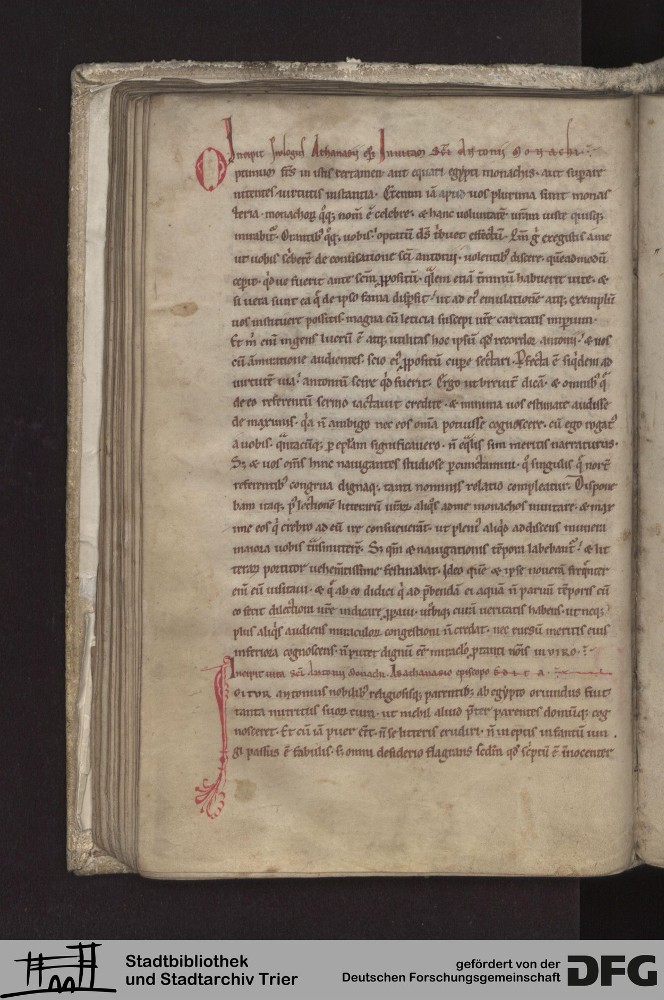 Incipit prologus Athanasii ep̅i In uitam sc̅i Antonii monachi.
Optimum fr̅s in istis certamen. aut equari egypti monachis. aut supare
nitentes uirtutis instantia. Etenim ia̅ apud uos plurima sunt monas
teria. monachoꝝ qꝫ nom̅ e̅ celebre. & hanc uoluntate̅ ur̅am iuste quisqꝫ
mirabit᷑. Orantibꝫ qꝫ uobis optatu̅ d̅s tribuet effectu̅. Qm̅ g̊ exegistis a me
ut uobis sc̅bere̅ de conuersatione sc̅i antonii. uolentibꝫ discere. que̅admodu̅
cepit. q̊d ue fuerit ante sc̅m ꝓpositu̅. q̅lem etia̅ t̅minu̅ habuerit uite. &
si uera sunt ea q̅ de ipso fama disp̅sit. ut ad ei᷒ emulatione̅ atqꝫ exemplu̅
uos instituere possitis. magna cu̅ leticia suscepi ur̅e caritatis imp̅ium.
Et m̅ eni̅ ingens lucru̅ e̅ atqꝫ utilitas hoc ipsu̅ qd̅ recordor antonii. & uos
cu̅ amiratione audientes. scio ei᷒ ꝓpositu̅ cupe sectari. Perfecta e̅ siq̊dem ad
uirtute̅ uia. antoniu̅ scire q̊d fuerit. Ergo ut breuit᷑ dica̅. & omnibꝫ q̅
de eo referentu̅ sermo iactauit credite. & minima uos estimate audisse
de maximis. q̊a n̅ ambigo nec eos om̅ia potuisse cognoscere. cu̅ ego rogat᷒
a uobis. q̅ntacu̅qꝫ ꝑ epl̅am significauero. n̅ eq̅lis sim meritis narraturus.
Sꝫ & uos om̅s hinc nauigantes studiose ꝑcunctamini. q̊ singulis q̅ nor̅t
referentibꝫ congrua dignaqꝫ tanti nominis relatio compleatur. Dispone
bam itaqꝫ p᷒ lectione̅ litteraru̅ ur̅aꝝ. aliq̊s ad me monachos inuitare. & max
ime eos q̊ crebro ad eu̅ ire consueuera̅t. ut pleni᷒ aliq̊d addiscens muneri
maiora uobis t̅nsmittere̅. Sꝫ qm̅ & nauigationis te̅pora labebant᷑. & lit
teraꝝ portitor uehem̅tissime festinabat. Ideo que̅ & ipse noueram freq̅nter
eni̅ eu̅ uisitaui. & q̅ ab eo didici q̊ ad p̅benda̅ ei aqua̅ n̅ paruu̅ te̅poris cu̅
eo fecit dilectioni ur̅e indicare ꝓpaui. utrubiqꝫ cura̅ ueritatis habens. ut neqꝫ
plus aliq̊s audiens miraculoꝝ congestioni n̅ credat. nec rursu̅ meritis eius
inferiora cognoscens. n̅ putet dignu̅ e̅e miraclo̅ ꝑ tanti nois̅ in uiro.
Incipit uita sc̅i Antonii monachi. Ab athanasio episcopo EDITA.
IGITUR antonius nobilibꝫ religiosisqꝫ parentibꝫ ab egypto oriundus fuit
tanta nutritus suoꝝ cura. ut nichil aliud p̅ter parentes domu̅qꝫ cog
nosceret. Et cu̅ ia̅ puer e̅et. n̅ se litteris erudiri. n̅ ineptis infantu̅ iun
gi passus e̅ fabulis. sꝫ omni desiderio flagrans sedm̅ qd̅ sc̅ptu̅ e̅ i̅nocenter
Stadtbibliothek
und Stadtarchiv Trier
gefördert von der
Deutschen Forschungsgemeinschaft
DFG